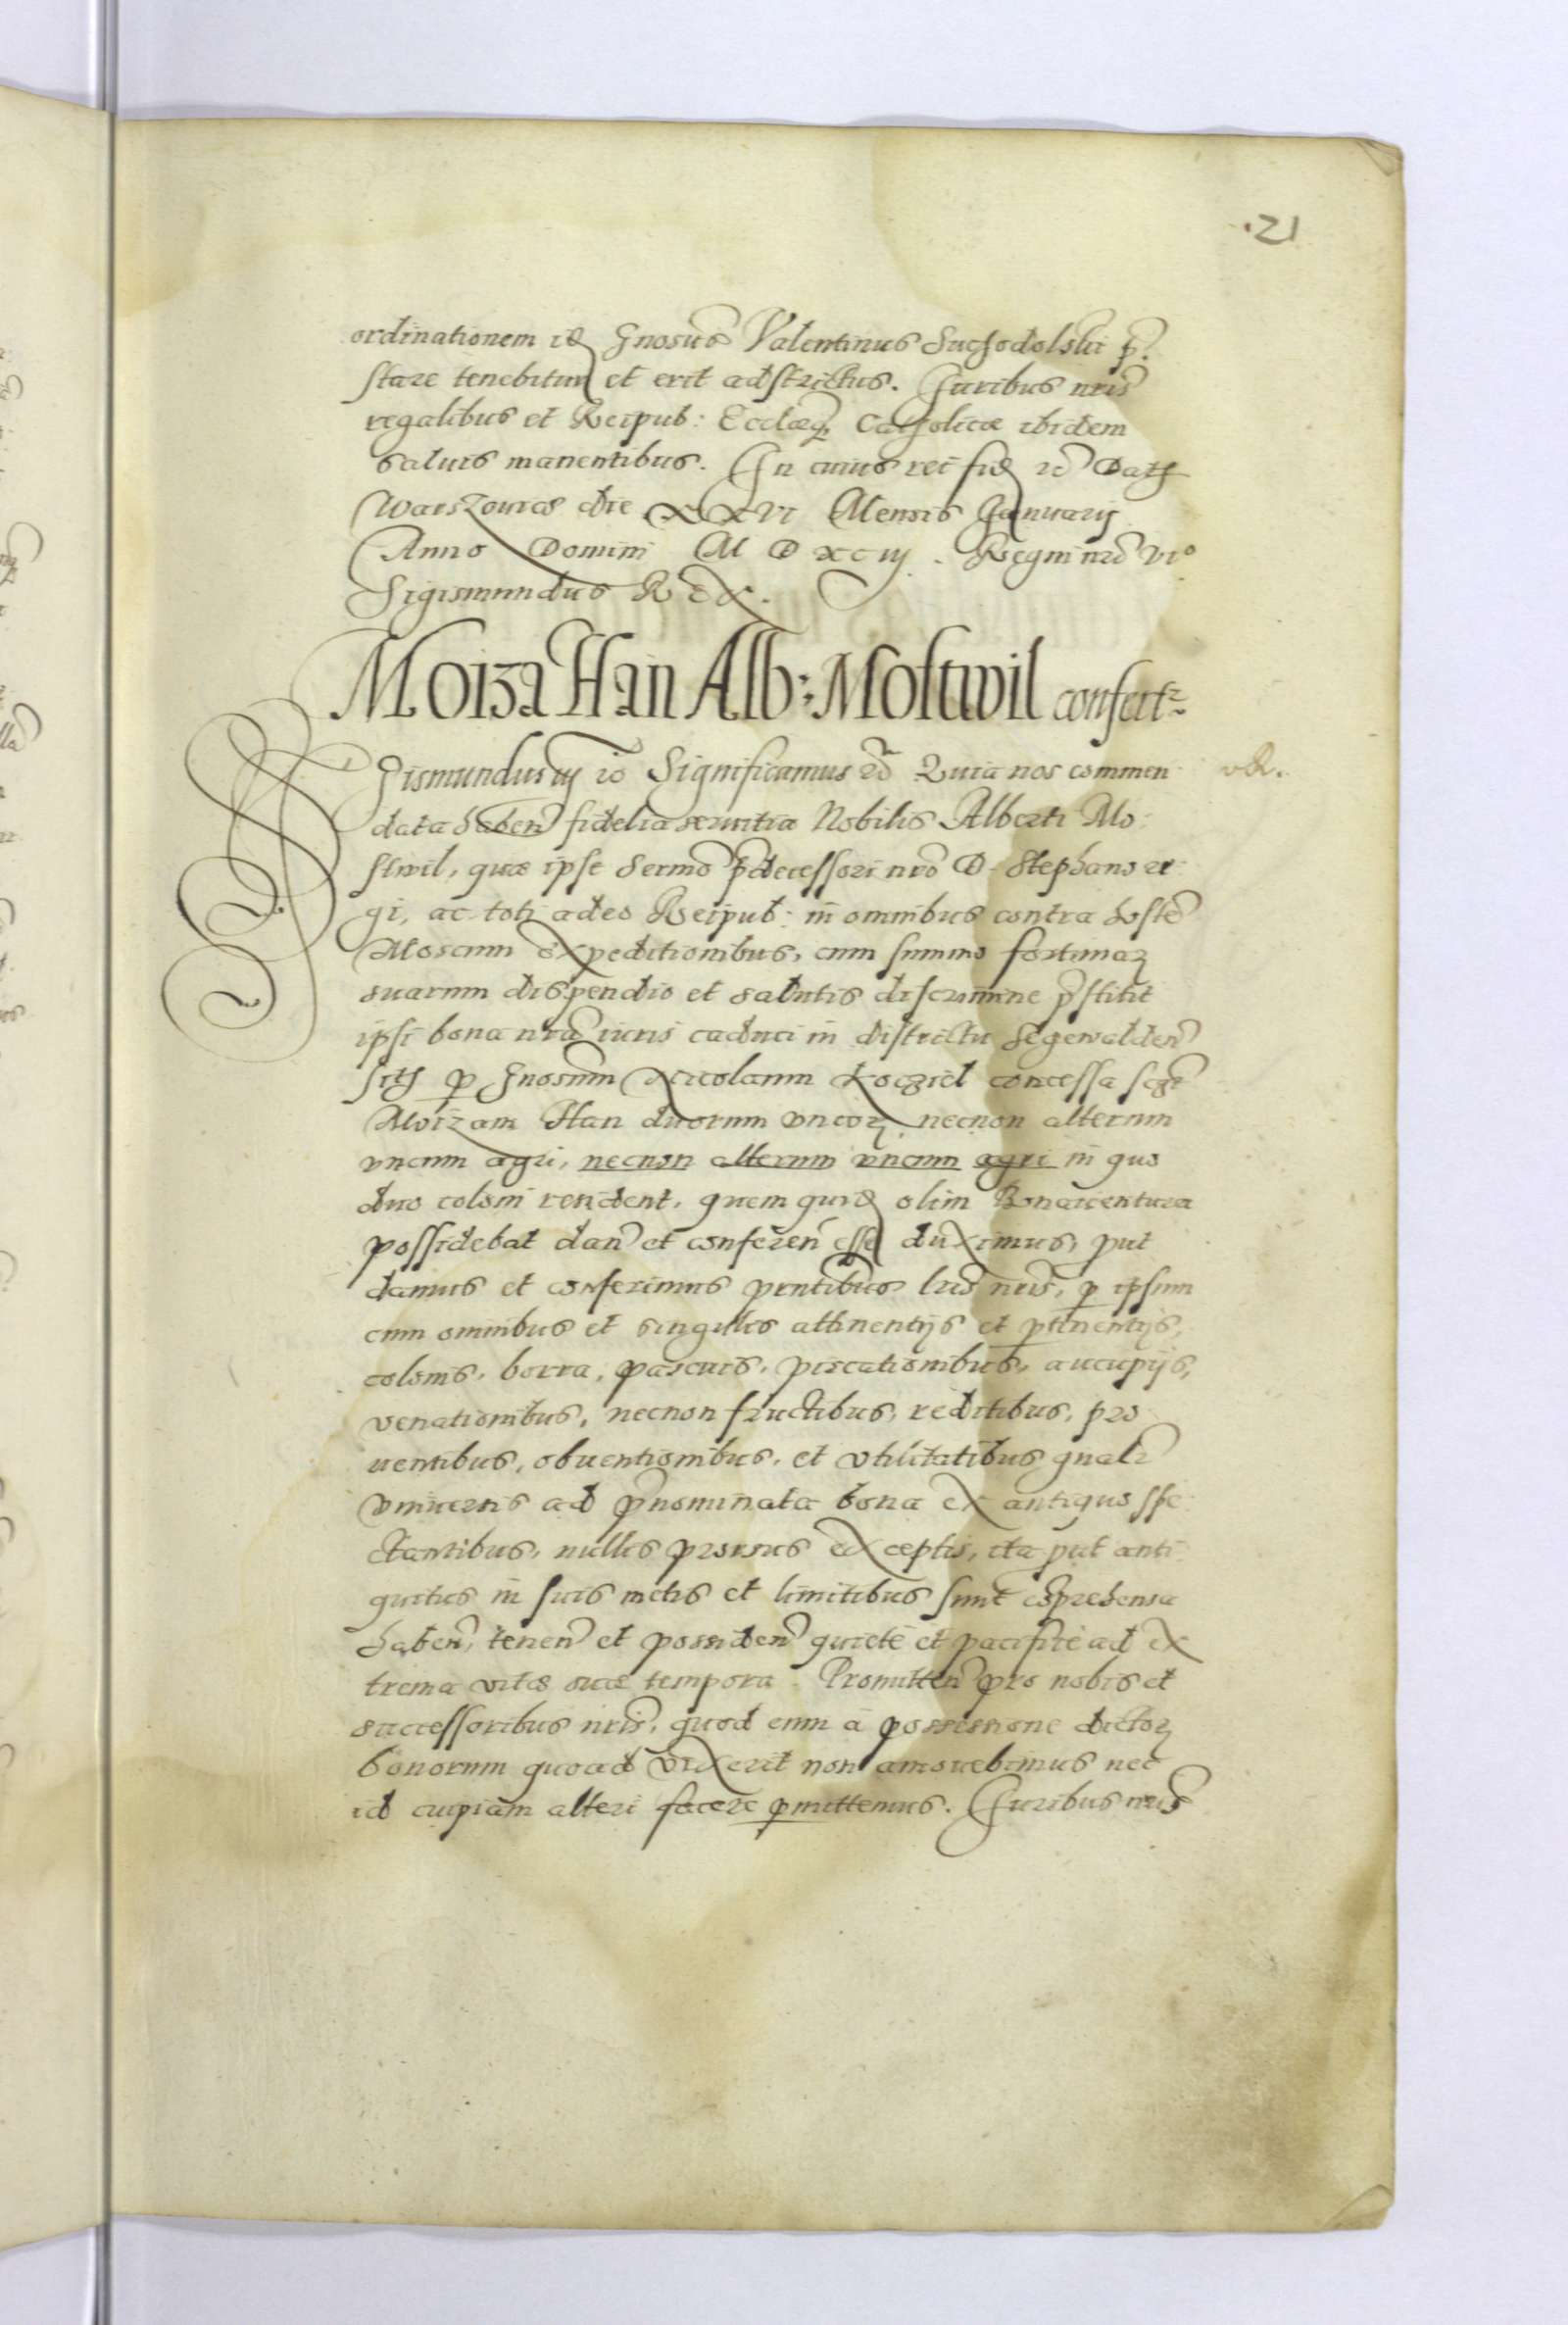 .21
ordinationem id Gnosus Valentinus Suchodolski p.
stare tenebitur et erit adstrictus. Iuribus nris
regalibus et Reipub: Ecclæq. Catholicæ ibidem
saluis manentibus. In cuius rei fid ec Dat
Warszouiæ die XXVI Mensis Ianuarij
Anno Domini M D XC iij. Regni nri VIo
Sigismundus REX.
Moiza Han Alb: Mostwil confert
Sigismundus iij ec Significamus ec Quia nos commen
data haben fidelia seruitia Nobilis Alberti Mo:
stwil, quæ ipse Sermo pdecessori nro D. Stephano re
gi, ac toti adeo Reipub: in omnibus contra hoste
Moscum expeditionibus, cum summo fortunar
suarum dispendio et salutis discrimine pstitit
ipsi bona nra iuris caduci in districtu Segewalden
sit p Gnosum Nicolaum Korziel concessa scz
Moizam Han duorum uncor, necnon alterum
vncum agri, necnon alterum vncum agri in quo
duo coloni resident, quem quid olim Bonauentura
possidebat dan et conferen esse duximus, put
damus et conferimus pntibus lris nris, p ipsum
cum omnibus et singulis attinentijs et ptinentijs,
colonis, borra, pascuis, piscationibus, aucupijs,
venationibus, necnon fructibus, reditibus, pro
uentibus, obuentionibus, et vtilitatibus gnalr
vniuersis ad pnominata bona ex antiquo spe
ctantibus, nullis prorsus exceptis, ita put anti
quitus in suis metis et limitibus sunt coprehensa
haben, tenen et possiden quietè et pacificè ad ex
trema vitæ suæ tempora. Promitten pro nobis et
successoribus nris, quod eum à possessione dictor
bonorum quoad vixerit non amouebimus nec
id cuipiam alteri facere pmittemus. Iuribus nris